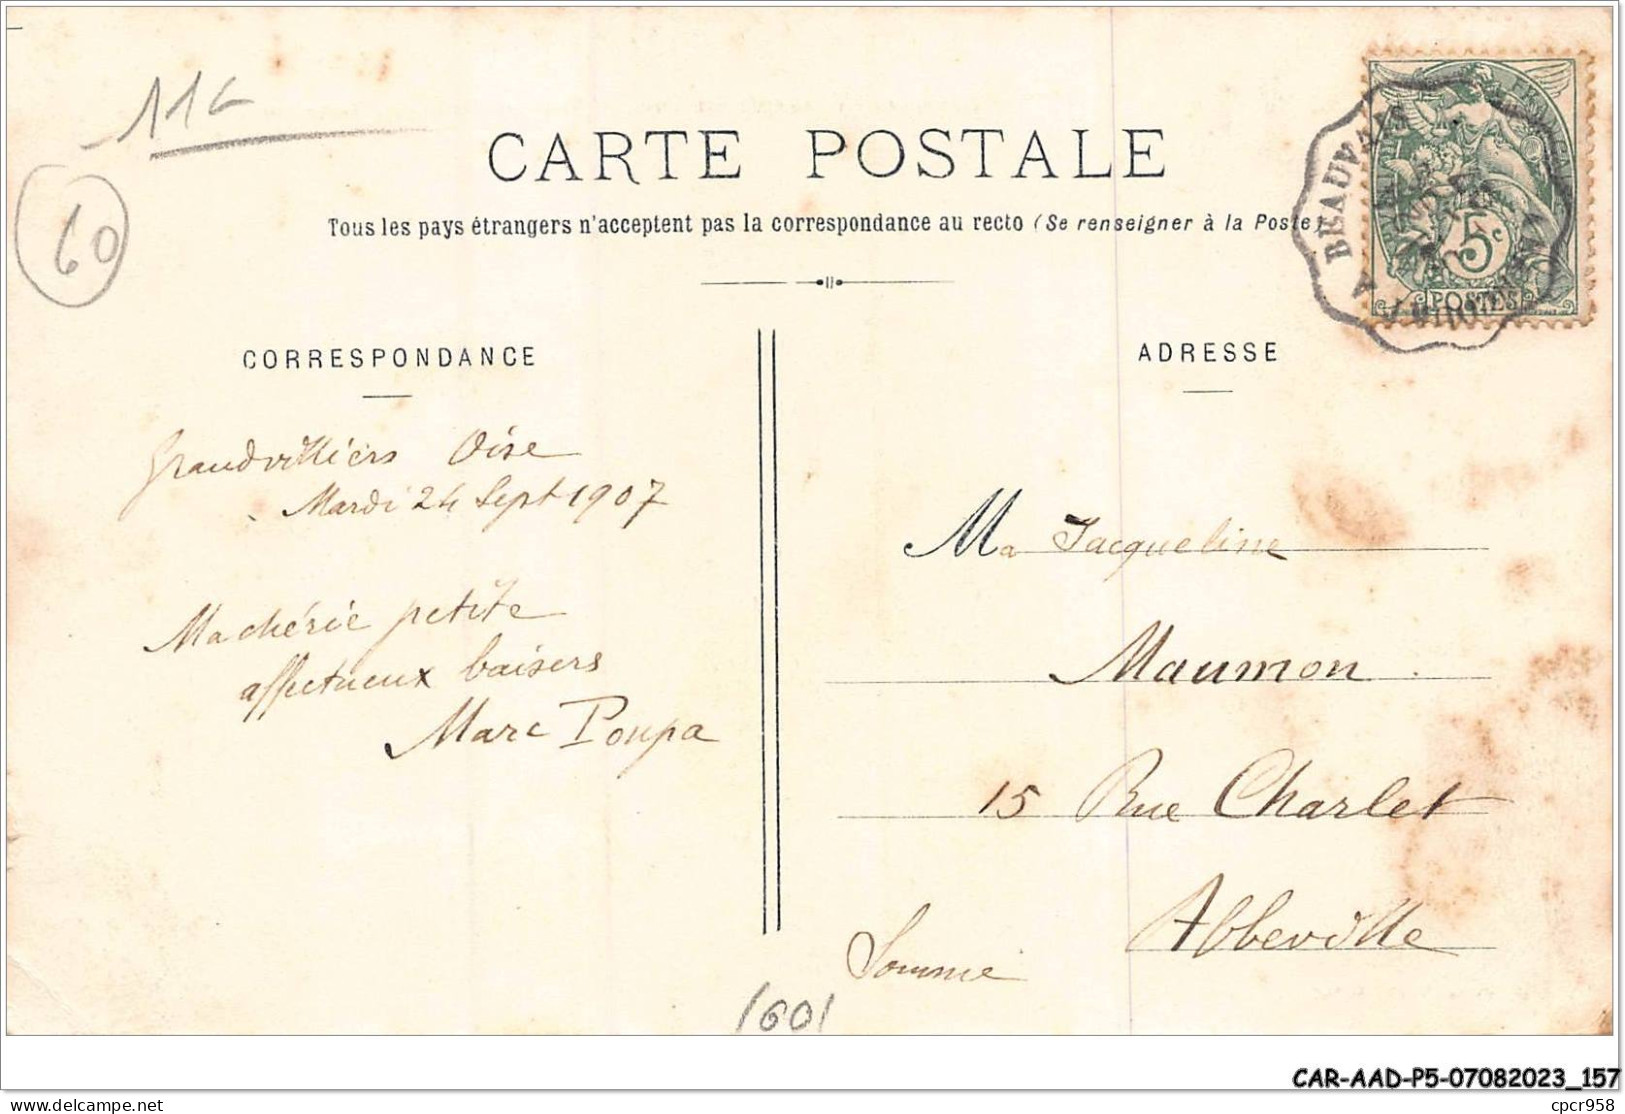 11€
60
CARTE POSTALE
Tous les pays étrangers n'acceptent pas la correspondance au recto (Se renseigner à la Poste)
BEAUVAIS
5c
POSTES
CORRESPONDANCE
ADRESSE
Grandvilliers Oise
Mardi 24 Sept 1907
Ma chérie petite
affectueux baisers
Marc Poupa
Ma Jacqueline
Maumon
15 Rue Charlet
Abbeville
Somme
1601
CAR-AAD-P5-07082023_157
delcampe.net
cpcr958